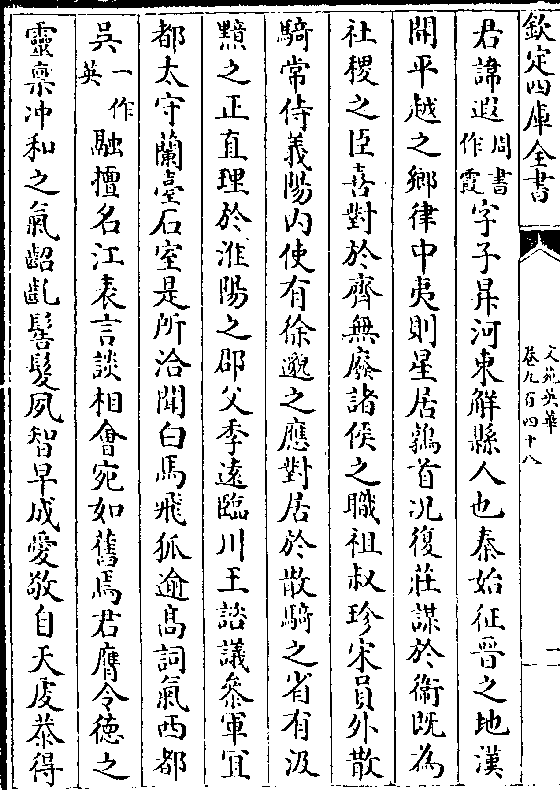 欽定四庫全書
文苑英華
卷九百四十八
一
君諱遐周書作霞字子昇河東解縣人也秦始征晉之地漢
開平越之鄉律中夷則星居鶉首況復莊謀於衛既為
社稷之臣喜對於齊無廢諸侯之職祖叔珍宋員外散
騎常侍義陽内使有徐邈之應對居於散騎之省有汲
黯之正直理於淮陽之郡父季遠臨川王諮議參軍宜
都太守蘭臺石室是所洽聞白馬飛狐逾高詞氣西都
吳一作英融擅名江表言談相會宛如舊焉君膺令德之
靈稟冲和之氣齠齔髫髮夙智早成愛敬自天虔恭得